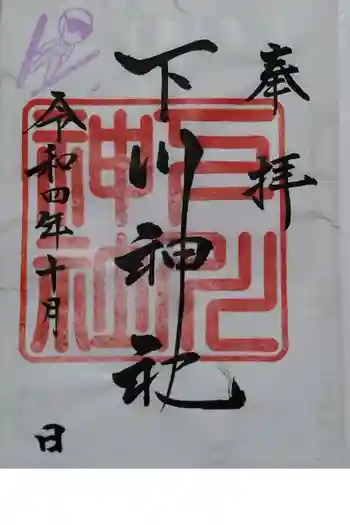 奉拝
下川神社
下川神社
令和四年十月
日